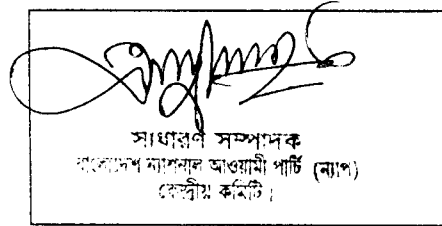 সাধারণ সম্পাদক
বাংলাদেশ ন্যাশনাল আওয়ামী পার্টি (ন্যাপ)
কেন্দ্রীয় কমিটি।